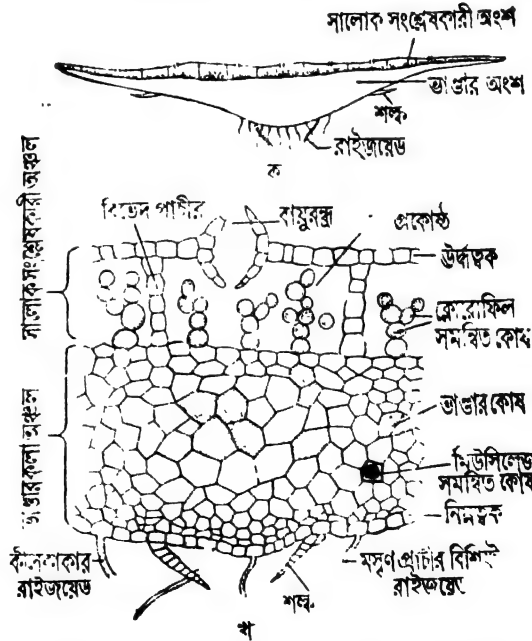 সালোক সংশ্লেষকারী অংশ
ভাণ্ডার অংশ
শল্ক
রাইজয়েড
ক
সালোক সংশ্লেষকারী অঞ্চল
বায়ুরন্ধ্র
প্রকোষ্ঠ
ঊর্দ্ধত্বক
ক্লোরোফিল
সমন্বিত কোষ
ভাণ্ডার কলা অঞ্চল
ভাণ্ডার কোষ
মিউসিলেজ
সমন্বিত কোষ
নিম্নত্বক
রাইজয়েড
মসৃণ প্রাচীর বিশিষ্ট
রাইজয়েড
শল্ক
খ